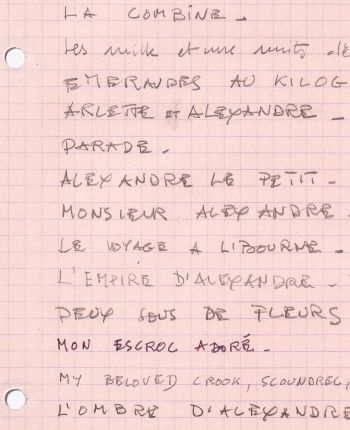 LA COMBINE.
Les mille et une nuits d'é
EMERAUDES AU KILOG
ARLETTE ET ALEXANDRE -
PARADE.
ALEXANDRE LE PETIT -
MONSIEUR ALEXANDRE.
LE VOYAGE A LIBOURNE -
L'EMPIRE D'ALEXANDRE -
DEUX SOUS DE FLEURS
MON ESCROC ADORÉ.
MY BELOVED CROOK, SCOUNDREL,
L'OMBRE D'ALEXANDRE